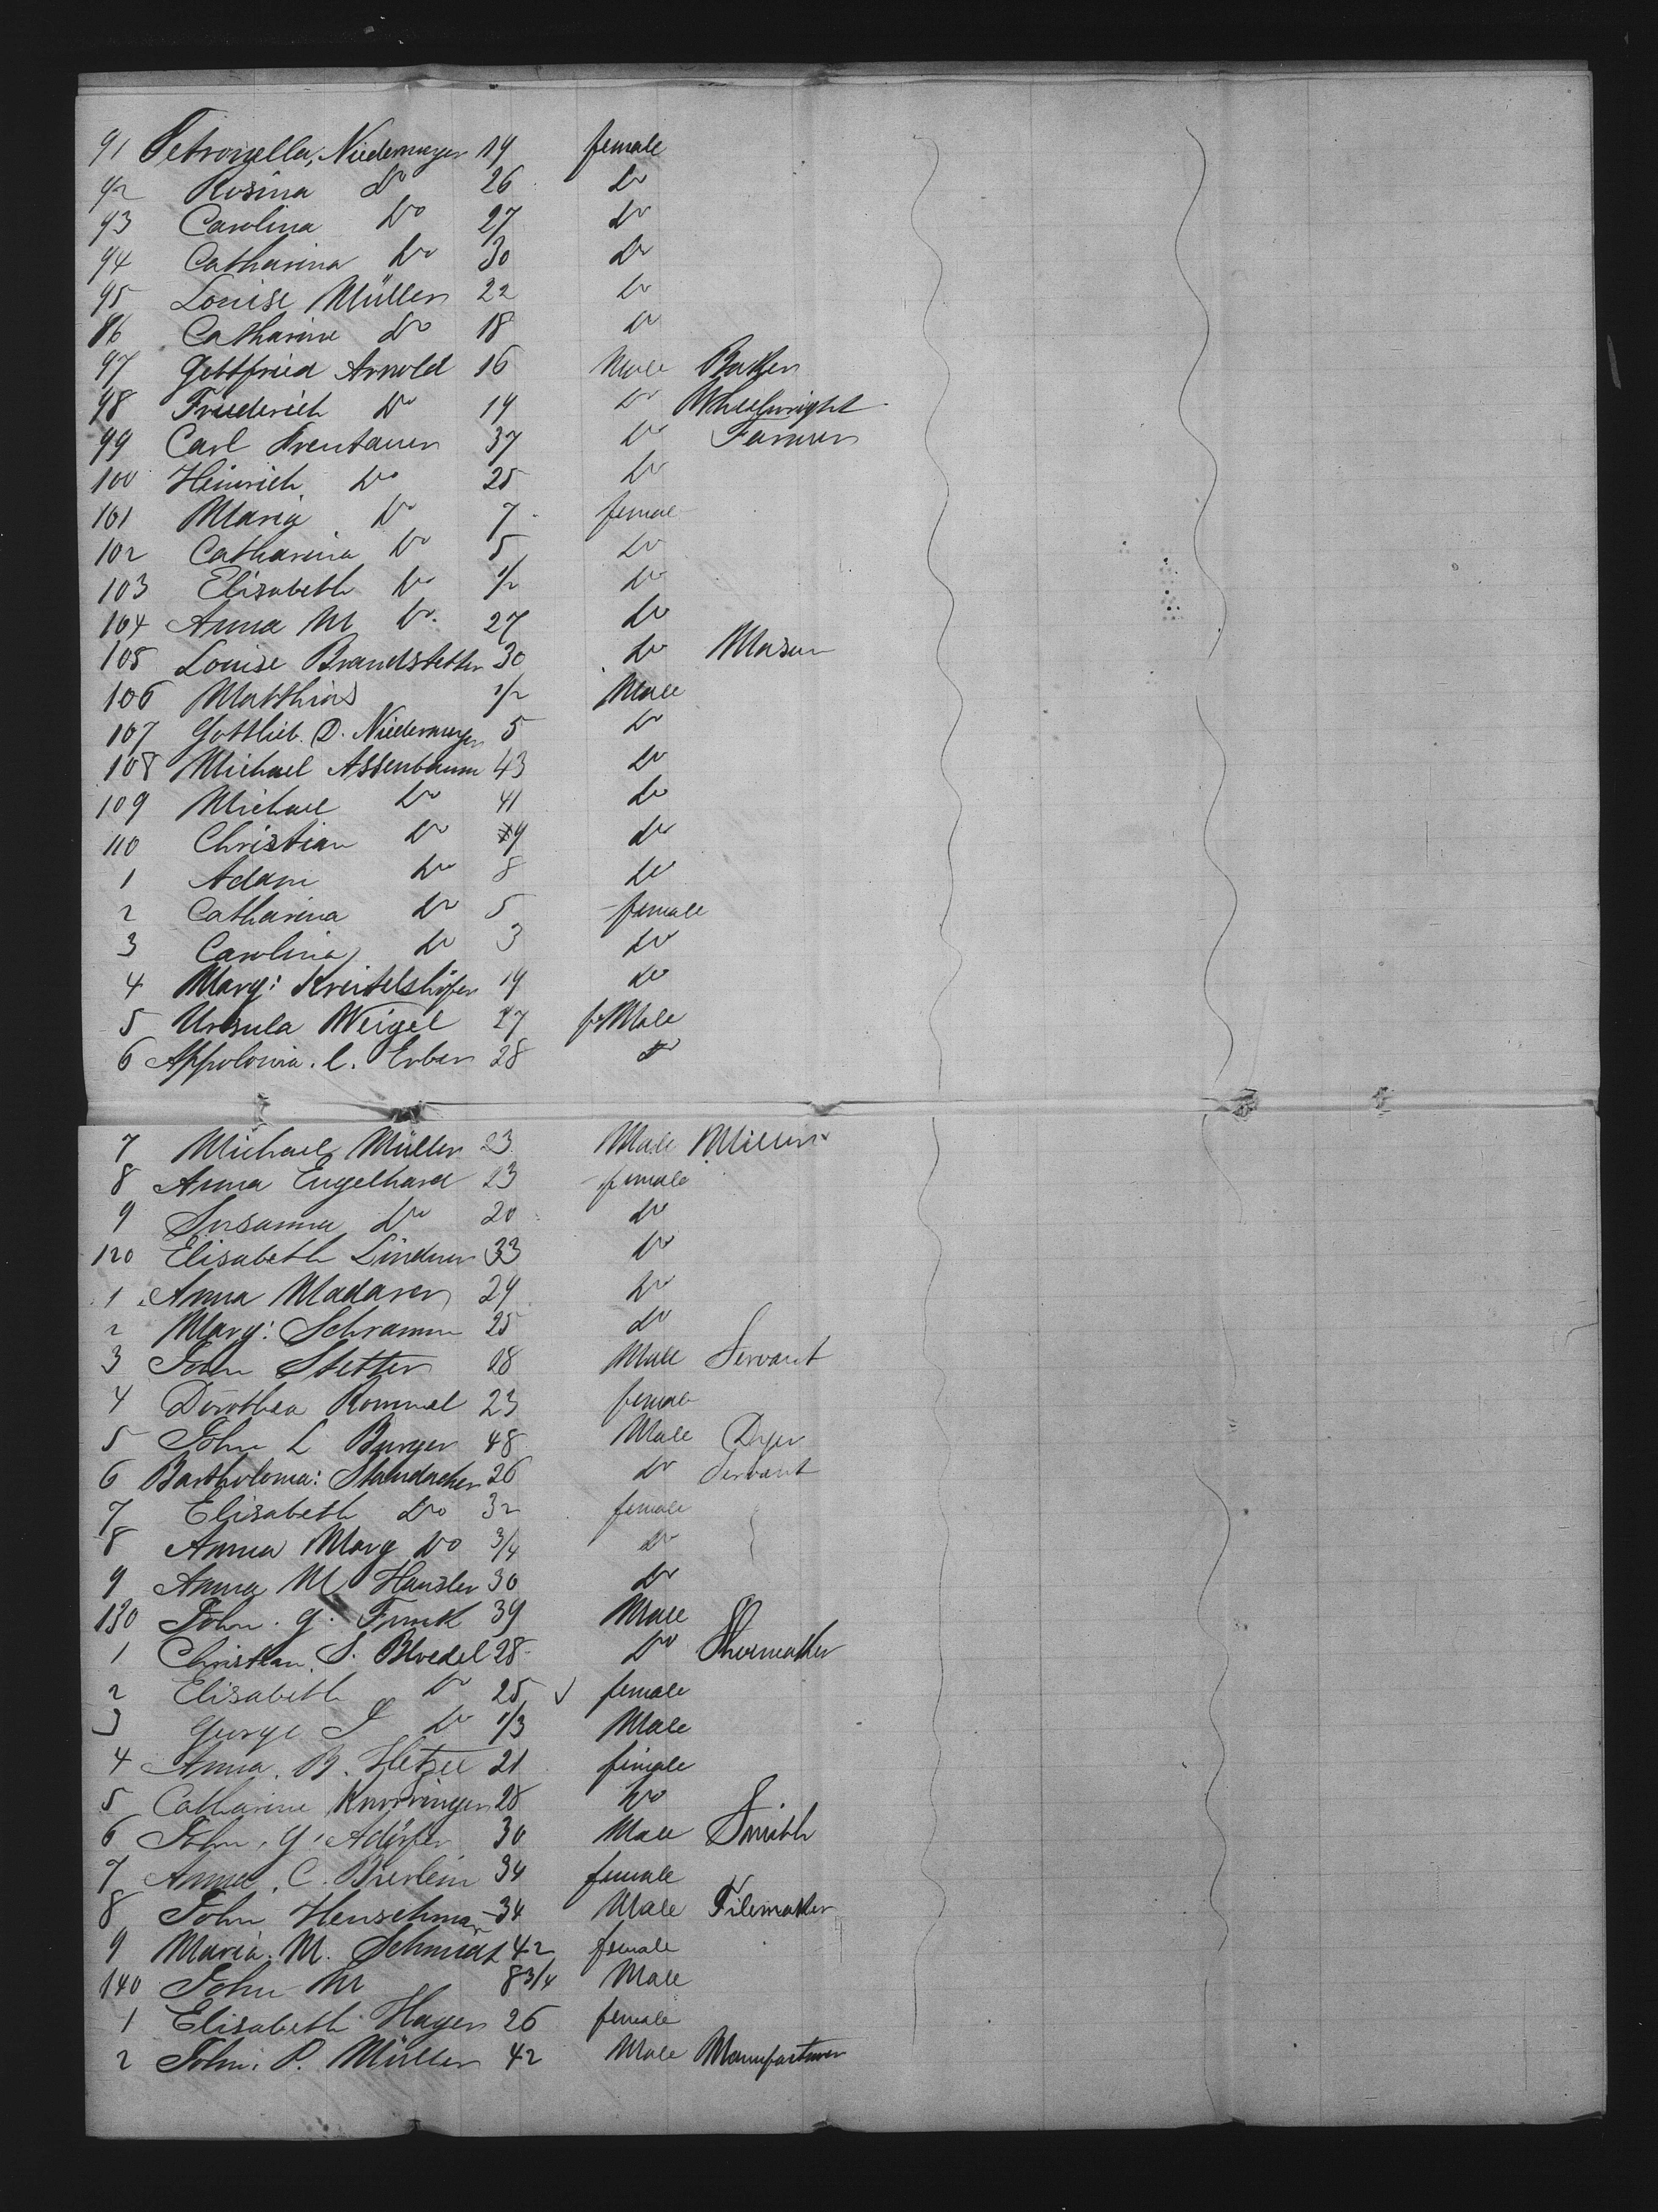 91 Petronella, Niedermayer 19 female
92 Rosina Do 26 Do
93 Carolina Do 27 Do
94 Catharina Do 30 Do
95 Louise Müller 22 Do
86 Catharine Do 18 Do
97 Gottfried Arnold 16 Male Baker
98 Friederich Do 19 Do Wheelwright
99 Carl 37 Do Farmer
100 Heinrich Do 25 Do
101 Maria Do 7 female
102 Catharina Do 5 Do
103 Elisabeth Do 1/2 Do
104 Anna M Do 27 Do
105 Louise Brandstetter 30 Do Mason
106 Matthias 1/2 Male
107 Gottlieb. D. Niedermayer 5 Do
108 Michael Assenbaum 43 Do
109 Michael Do 41 Do
110 Christian Do 9 Do
1 Adam Do 8 Do
2 Catharina Do 5 female
3 Carolina Do 3 Do
4 Marg: Kreitelshöfer 19 Do
5 Ursula Weigel 27 feMale
6 Appolonia. C. Erber 28 Do
7 Michael Müller 23 Male Miller
8 Anna Engelhard 23 female
9 Susanna Do 20 Do
120 Elisabeth Lindner 33 Do
1 Anna Madarer 24 Do
2 Marg: Schramm 25 Do
3 John Stetter 28 Male Servant
4 Dorothea Rommel 23 female
5 John L Burger 48 Male Dyer
6 Bartholoma: Staudacher 26 Do Servant
7 Elisabeth Do 32 female
8 Anna Marg Do 3/4 Do
9 Anna M Hausler 30 Do
130 John. G. Funk 39 Male
1 Christian. S. Bloedel 28 Do Shoemaker
2 Elisabeth Do 25 female
3 George J Do 1/3 Male
4 Anna. B. Hetzel 21 female
5 Catharine Knorringer 28 Do
6 John. G. Adörfer 30 Male Smith
7 Anna. C. Bierlein 34 female
8 John Henschman 34 Male Filemaker
9 Maria. M. Schmidt 42 female
140 John M 8 3/4 Male
1 Elisabeth Hager 26 female
2 John. P. Müller 42 Male Manufacturer